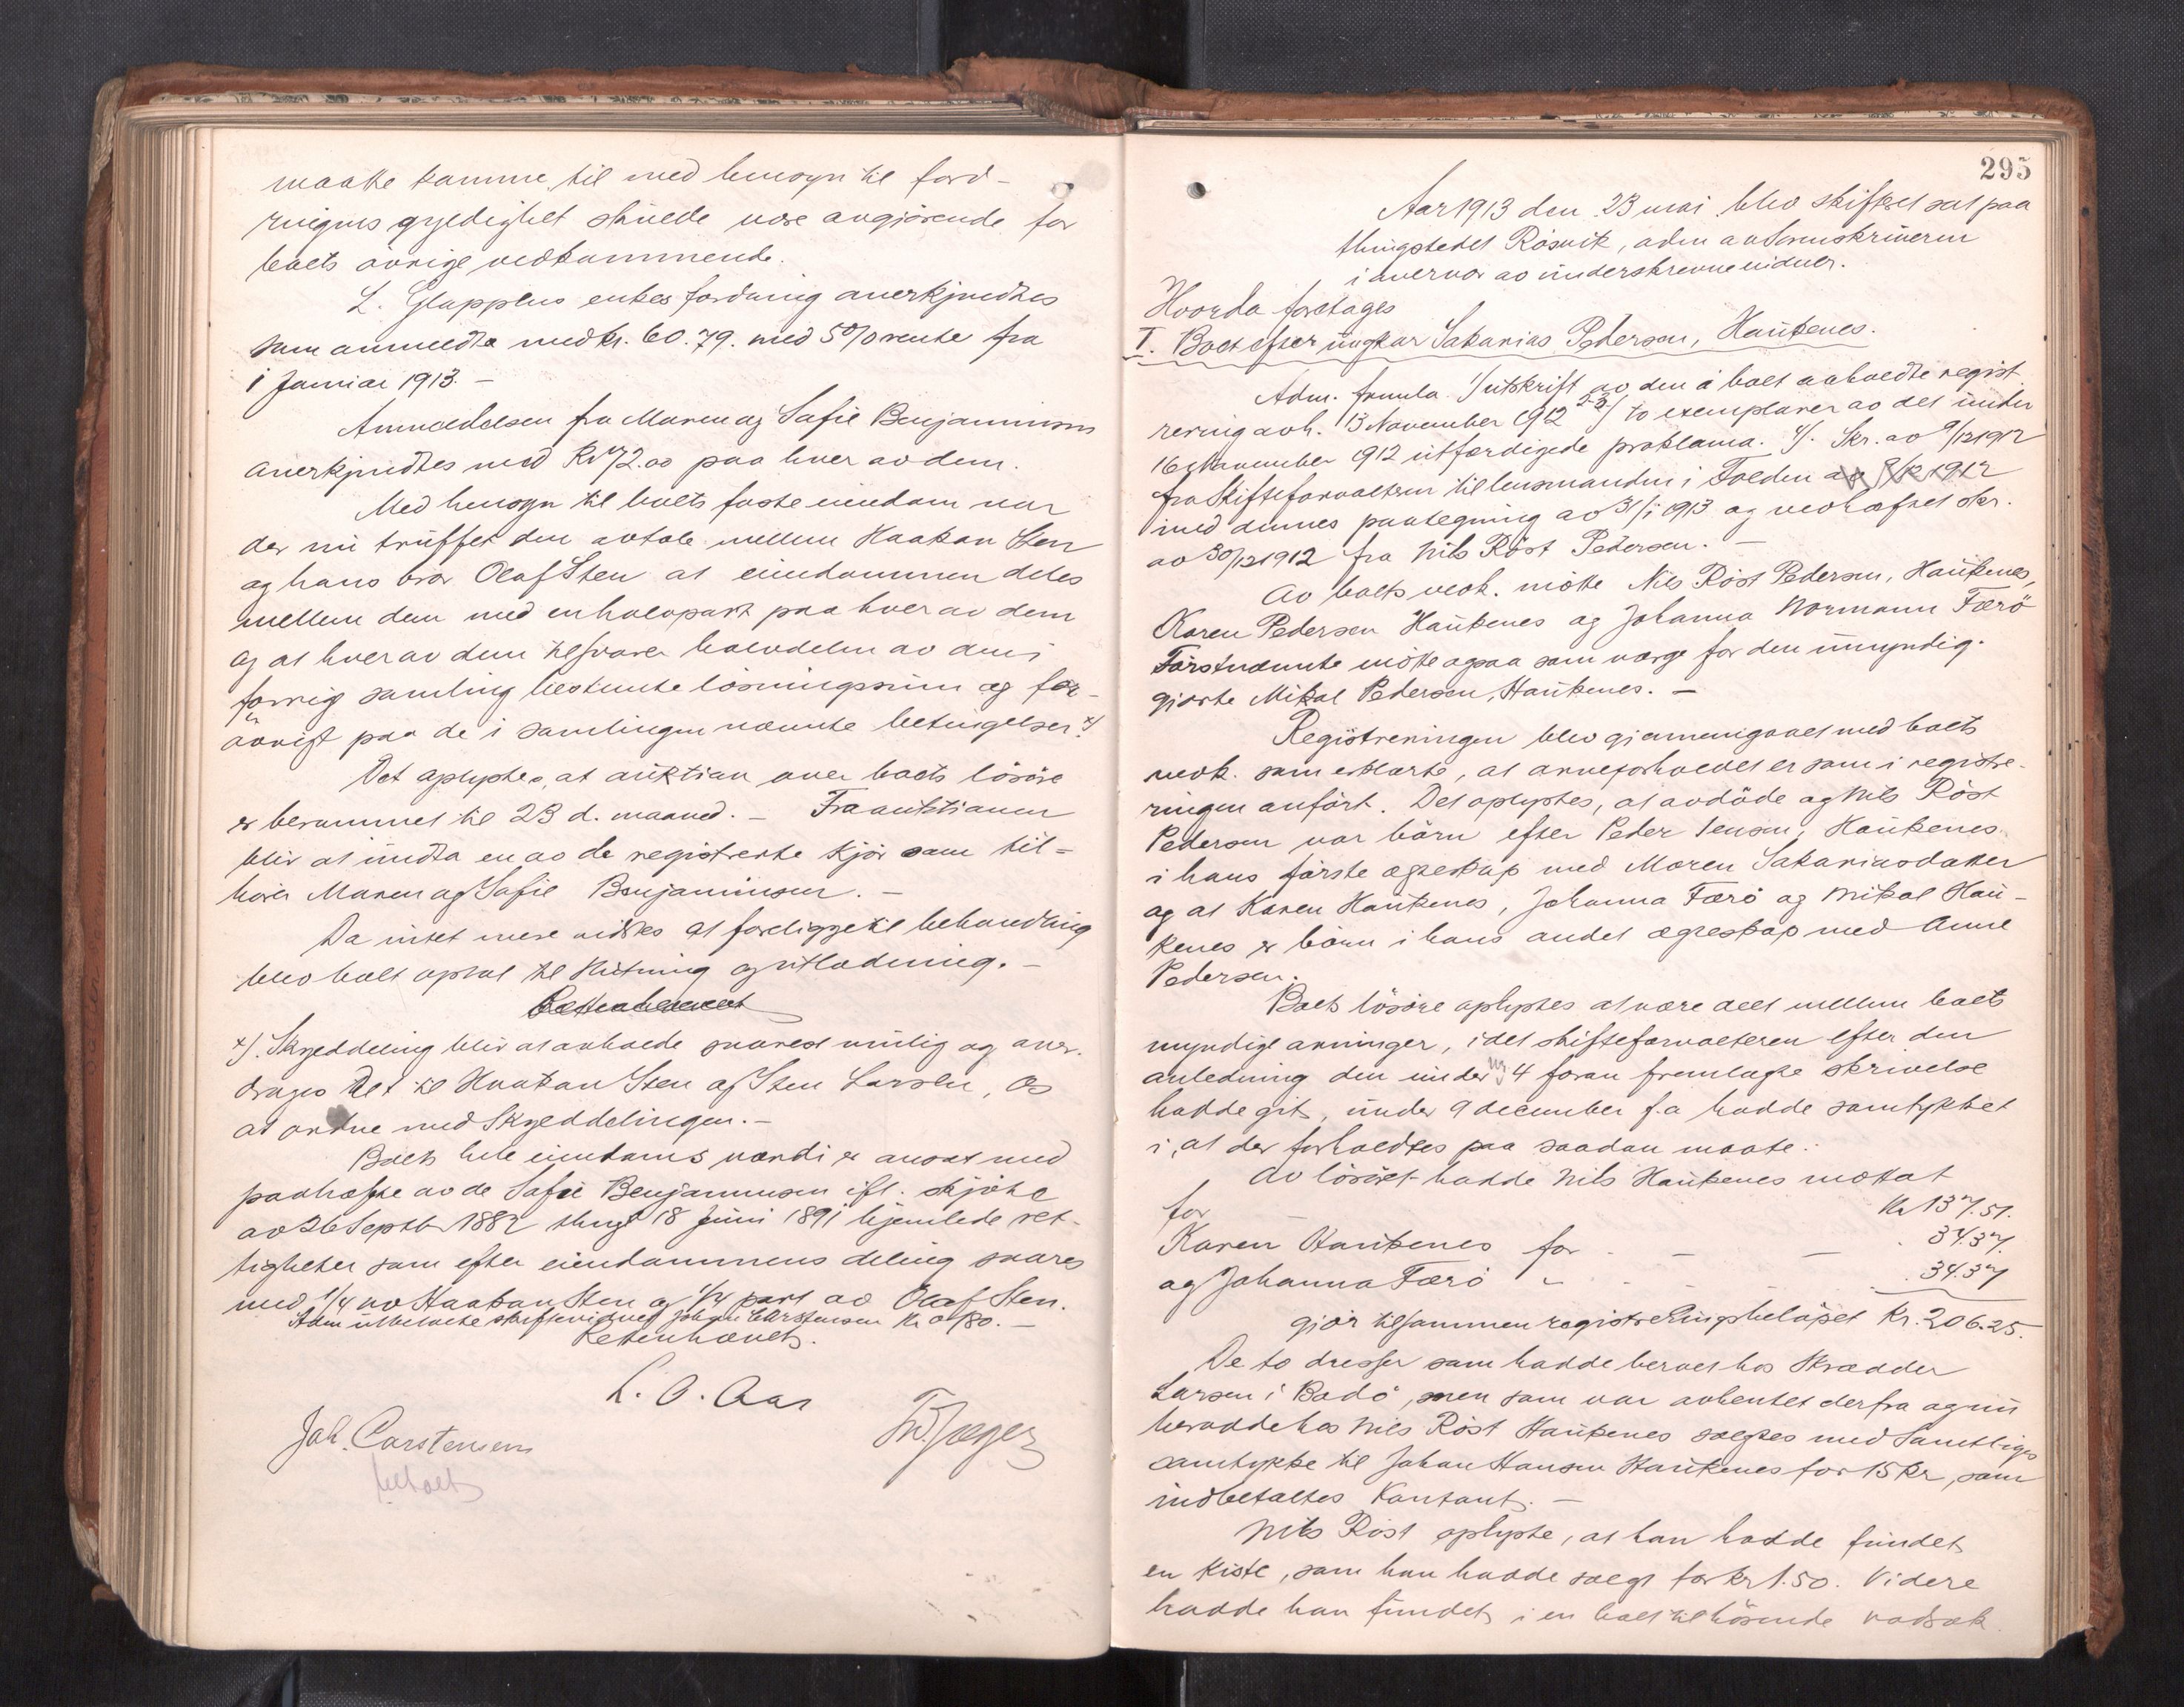 maatte komme til med hensyn til ford-
ringens gyldighet skulde være avgjørende for
boets øvrige vedkommende.
L. Glapplus enkes fordring anerkjendtes
som anmeldte med kr. 60.79. med 5% rente fra
1 Januar 1913. -
Anmeldelsen fra Maren og Safie Benjaminsen
anerkjendtes med Kr 72.00 paa hver av dem.
Med hensyn til boets faste eiendom var
der nu truffet den avtale mellem Haakon Sten
og hans bror Olaf Sten at eiendommen deles
mellem dem med en halvpart paa hver av dem
og at hver av dem tilsvarer halvdelen av den i
forrige samling bestemte løsningssum og for-
øvrigt paa de i samlingen nævnte betingelser. x/
Det oplystes, at auktion over boets løsøre
er berammet til 23 d. maaned. - Fra auktionen
blir at undta en av de registrerte kjør som til=
hører Maren og Safie Benjaminsen. -
Da intet mere vidstes at foreligge til behandling
blev boet optat til slutning og utlodning. -
Retten hævet
x/. Skylddeling blir at avholde snarest mulig og over-
drages det til Haakon Sten og Sten Larsen, Os
at ordne med Skylddelingen. -
Boets hele eiendoms værdi er ansat med
paahæfte av de Safie Benjaminsen ifl. skjøte
av 26 Septbr 1882 thingl 18 Juni 1891 hjemlede ret-
tigheter som efter eiendommens deling svares
med 1/4 av Haakon Sten og 1/4 part av Olaf Sten.
Adm utbetalte skiftevidnet Johan Carstensen Kr 0.80. -
Retten hævet.
L. O. Aas
Joh. Carstensen
Fr. Jæger
betalt
295
Aar 1913 den 23 mai blev skifteret sat paa
thingstedet Røsvik, adm av Sorenskriveren
i overvær av underskrevne vidner.
Hvorda foretages
I. Boet efter ungkar Sakarias Pedersen, Haukenes.
Adm. fremla 1/ utskrift av den i boet avholdte regist
rering avh. 13 November 1912 2-3/ to exemplarer av det under
16 November 1912 utfærdigede proklama. 4/. Skr. av 9/12 1912
fra Skifteforvalteren til lensmanden i Folden av 9/12 1912
med dennes paategning av 31/1 1913 og vedhæftet skr.
av 30/12 1912 fra Nils Røst Pedersen. -
Av boets vedk. møtte Nils Røst Pedersen, Haukenes,
Karen Pedersen Haukenes og Johanna Normann Færø
Førstnævnte møtte ogsaa som værge for den umyndig-
gjorte Mikal Pedersen, Haukenes. -
Registreringen blev gjennemgaaet med boets
vedk. som erklærte, at arveforholdet er som i registre-
ringen anført. Det oplystes, at avdøde og Nils Røst
Pedersen var børn efter Peder Jensen, Haukenes
i hans første egteskap med Maren Sakariasdatter
og at Karen Haukenes, Johanna Færø og Mikal Hau-
kenes er børn i hans andet egteskap med Anne
Pedersen.
Boets løsøre oplystes at være delt mellem boets
myndige arvinger, idet skifteforvalteren efter den
anledning den under No 4 foran fremlagte skrivelse
hadde git, under 9 december f.a hadde samtykket
i, at der forholdtes paa saadan maate.
Av løsøret hadde Nils Haukenes mottat
for - Kr 137.51.
Karen Haukenes for - - 34.37.
og Johanna Færø " - - 34.37
gjør tilsammen registreringsbeløpet Kr. 206.25.
De to dresser som hadde beroet hos Skrædder
Larsen i Bodø, men som var avhentet derfra og nu
berodde hos Nils Røst Haukenes solgtes med samtliges
samtykke til Johan Hansen Haukenes for 15 Kr, som
indbetaltes kontant. -
Nils Røst oplyste, at han hadde fundet
en kiste, som han hadde solgt for kr 1.50. Videre
hadde han fundet i en boet tilhørende vadsæk